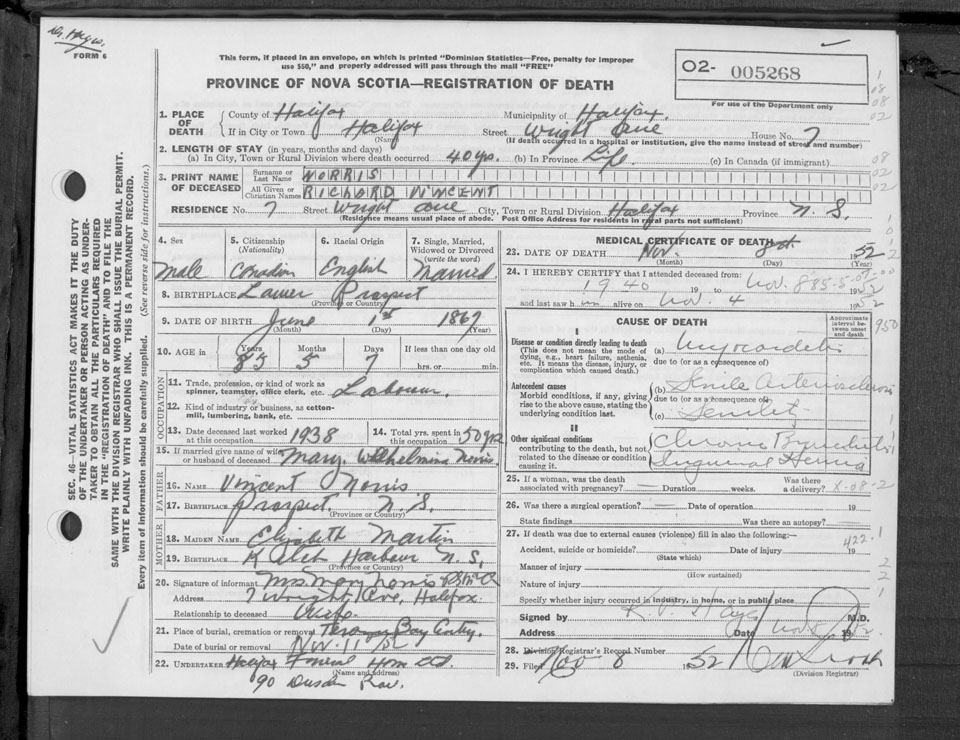 Dr. Hayes.
FORM 6
This form, if placed in an envelope, on which is printed "Dominion Statistics—Free, penalty for improper
use $50," and properly addressed will pass through the mail "FREE"
PROVINCE OF NOVA SCOTIA—REGISTRATION OF DEATH
O2- 005268
For use of the Department only
1. PLACE OF DEATH
County of Halifax Municipality of Halifax
If in City or Town Halifax Street Wright Ave House No. 7
(Name) (If death occurred in a hospital or institution, give the name instead of street and number)
2. LENGTH OF STAY (in years, months and days)
(a) In City, Town or Rural Division where death occurred 40 yrs. (b) In Province Life (c) In Canada (if immigrant)
3. PRINT NAME OF DECEASED
Surname or Last Name NORRIS
All Given or Christian Names RICHARD VINCENT
RESIDENCE No. 7 Street Wright Ave City, Town or Rural Division Halifax Province N.S.
(Residence means usual place of abode. Post Office Address for residents in rural parts not sufficient)
4. Sex Male
5. Citizenship (Nationality) Canadian
6. Racial Origin English
7. Single, Married, Widowed or Divorced (write the word) Married
8. BIRTHPLACE Lower Prospect
(Province or Country)
9. DATE OF BIRTH June 1st 1867
(Month) (Day) (Year)
10. AGE in Years 85 Months 5 Days 7 If less than one day old
hrs. or min.
OCCUPATION
11. Trade, profession, or kind of work as spinner, teamster, office clerk, etc. Labourer
12. Kind of industry or business, as cotton-mill, lumbering, bank, etc.
13. Date deceased last worked at this occupation 1938 14. Total yrs. spent in this occupation 50 yrs
15. If married give name of wife or husband of deceased Mary Wilhelmina Norris
FATHER
16. NAME Vincent Norris
17. BIRTHPLACE Prospect. N.S.
(Province or Country)
MOTHER
18. MAIDEN NAME Elizabeth Martin
19. BIRTHPLACE Ketch Harbour N.S.
(Province or Country)
20. Signature of informant Mrs Mary Norris
Address 7 Wright Ave, Halifax.
Relationship to deceased Wife
21. Place of burial, cremation or removal Terence Bay
Date of burial or removal Nov. 11/52
22. UNDERTAKER Halifax Funeral Home Ltd.
(Name and address)
90
MEDICAL CERTIFICATE OF DEATH
23. DATE OF DEATH Nov. 8th 1952
(Month) (Day) (Year)
24. I HEREBY CERTIFY that I attended deceased from:
1940 19 to Nov. 8 1952
and last saw him alive on Nov. 4 1952
CAUSE OF DEATH
Approximate interval between onset and death
I
Disease or condition directly leading to death
(This does not mean the mode of dying, e.g., heart failure, asthenia, etc. It means the disease, injury, or complication which caused death.)
(a) Myocarditis
due to (or as a consequence of)
Antecedent causes
Morbid conditions, if any, giving rise to the above cause, stating the underlying condition last.
(b) Senile Arteriosclerosis
due to (or as a consequence of)
(c) Senility
II
Other significant conditions
contributing to the death, but not related to the disease or condition causing it.
Chronic Bronchitis
Inguinal Hernia
25. If a woman, was the death associated with pregnancy? — Duration weeks. Was there a delivery?
26. Was there a surgical operation? — Date of operation 19
State findings Was there an autopsy?
27. If death was due to external causes (violence) fill in also the following:—
Accident, suicide or homicide? Date of injury 19
(State which)
Manner of injury
(How sustained)
Nature of injury
Specify whether injury occurred in industry, in home, or in public place
Signed by Hayes M.D.
Address Date Nov 8 1952.
28. Division Registrar's Record Number
29. Filed 8 1952
(Division Registrar)
SEC. 46—VITAL STATISTICS ACT MAKES IT THE DUTY
OF THE UNDERTAKER OR PERSON ACTING AS UNDER-
TAKER TO OBTAIN ALL THE PARTICULARS REQUIRED
IN THE "REGISTRATION OF DEATH" AND TO FILE THE
SAME WITH THE DIVISION REGISTRAR WHO SHALL ISSUE THE BURIAL PERMIT.
WRITE PLAINLY WITH UNFADING INK. THIS IS A PERMANENT RECORD.
Every item of information should be carefully supplied. (See reverse side for instructions.)